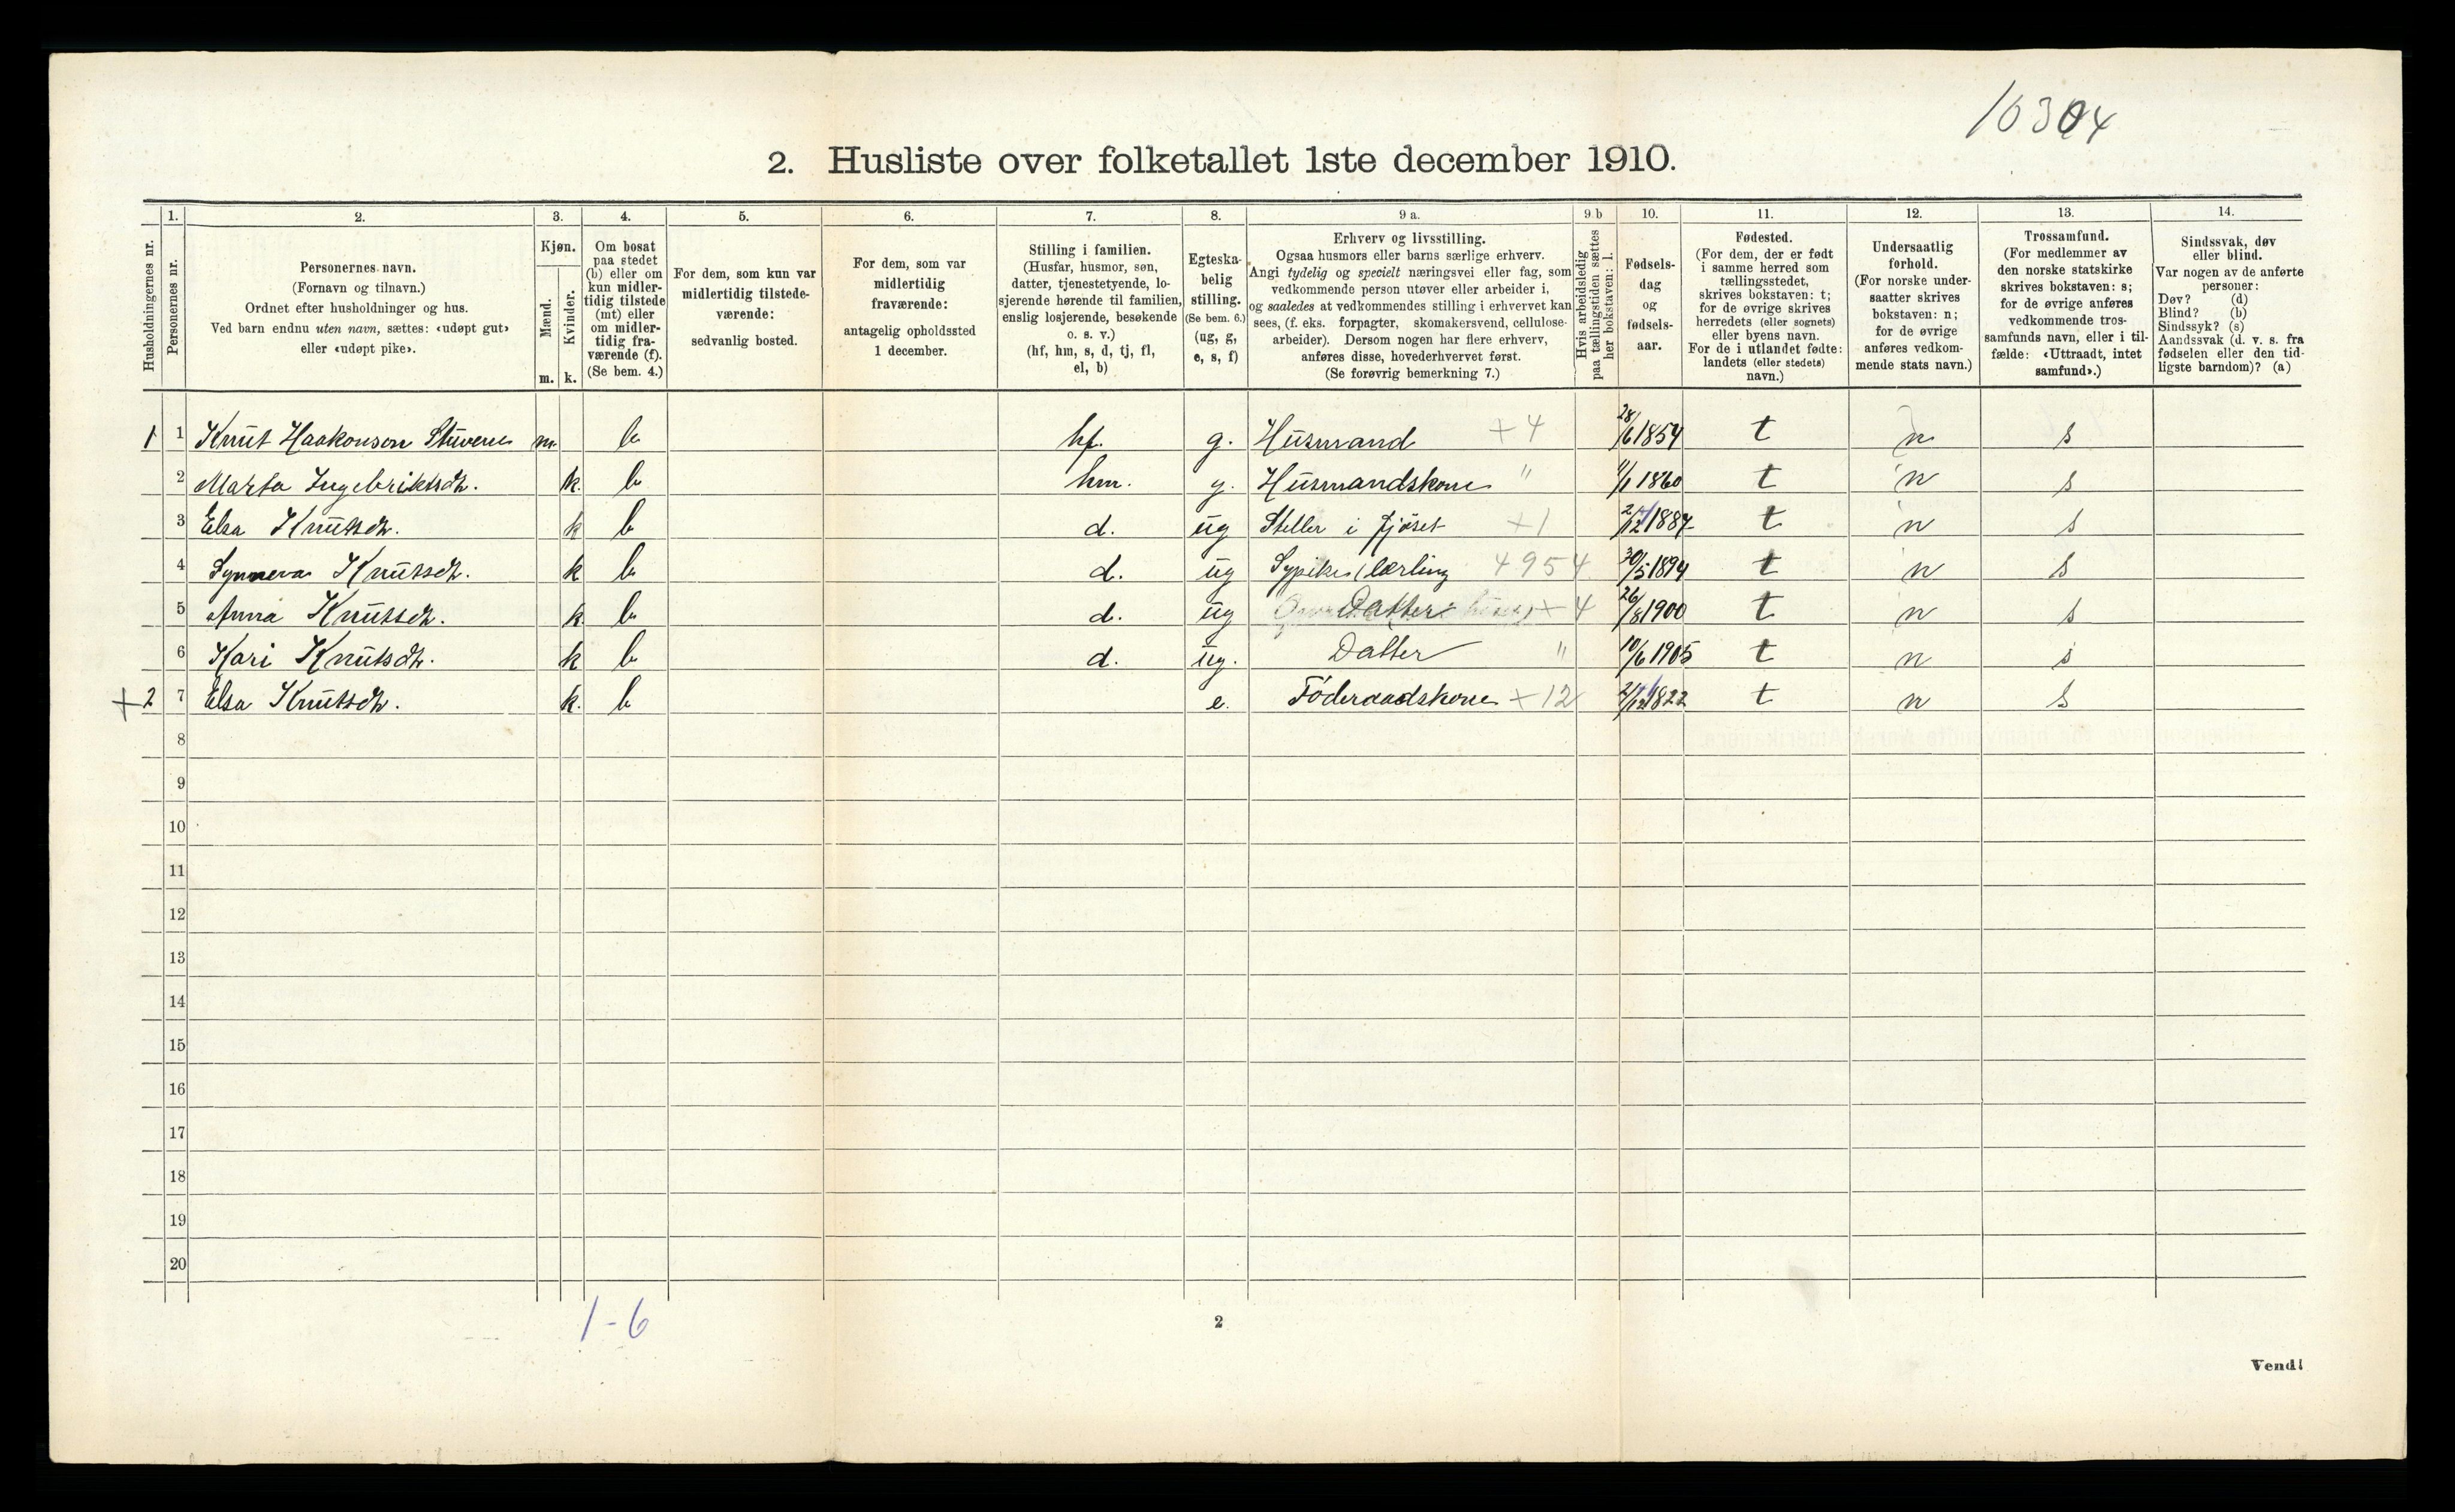 10304
2. Husliste over folketallet 1ste december 1910.
1. 2. 3. 4. 5. 6. 7. 8. 9 a. 9 b 10. 11. 12. 13. 14.
Husholdningernes nr.
Personernes nr.
Personernes navn.
(Fornavn og tilnavn.)
Ordnet efter husholdninger og hus.
Ved barn endnu uten navn, sættes: «udøpt gut»
eller «udøpt pike».
Kjøn.
Mænd.
Kvinder.
m. k.
Om bosat
paa stedet
(b) eller om
kun midler-
tidig tilstede
(mt) eller
om midler-
tidig fra-
værende (f).
(Se bem. 4.)
For dem, som kun var
midlertidig tilstede-
værende:
sedvanlig bosted.
For dem, som var
midlertidig
fraværende:
antagelig opholdssted
1 december.
Stilling i familien.
(Husfar, husmor, søn,
datter, tjenestetyende, lo-
sjerende hørende til familien,
enslig losjerende, besøkende
o. s. v.)
(hf, hm, s, d, tj, fl,
el, b)
Egteska-
belig
stilling.
(Se bem. 6.)
(ug, g,
e, s, f)
Erhverv og livsstilling.
Ogsaa husmors eller barns særlige erhverv.
Angi tydelig og specielt næringsvei eller fag, som
vedkommende person utøver eller arbeider i,
og saaledes at vedkommendes stilling i erhvervet kan
sees, (f. eks. forpagter, skomakersvend, cellulose-
arbeider). Dersom nogen har flere erhverv,
anføres disse, hovederhvervet først.
(Se forøvrig bemerkning 7.)
Hvis arbeidsledig
paa tællingstiden sættes
her bokstaven: l.
Fødsels-
dag
og
fødsels-
aar.
Fødested.
(For dem, der er født
i samme herred som
tællingsstedet,
skrives bokstaven: t;
for de øvrige skrives
herredets (eller sognets)
eller byens navn.
For de i utlandet fødte:
landets (eller stedets)
navn.)
Undersaatlig
forhold.
(For norske under-
saatter skrives
bokstaven: n;
for de øvrige
anføres vedkom-
mende stats navn.)
Trossamfund.
(For medlemmer av
den norske statskirke
skrives bokstaven: s;
for de øvrige anføres
vedkommende tros-
samfunds navn, eller i til-
fælde: «Uttraadt, intet
samfund».)
Sindssvak, døv
eller blind.
Var nogen av de anførte
personer:
Døv? (d)
Blind? (b)
Sindssyk? (s)
Aandssvak (d. v. s. fra
fødselen eller den tid-
ligste barndom)? (a)
1 1 Knut Haakonson Stuvene m b hf. g. Husmand + 4 28/6 1854 t n s
2 Marta Ingebriktsdtr. k. b hm. g. Husmandskone " 1/1 1860 t n s
3 Elsa Knutsdtr. k b d. ug Steller i fjöset + 1 1884 t n s
4 Synneva Knutsdtr. k b d. ug Sypike (lærling 4954 30/5 1894 t n s
5 Anna Knutsdtr. k b d. ug Datter + 4 26/8 1900 t n s
6 Kari Knutsdtr. k b d. ug. Datter " 10/6 1905 t n s
+ 2 7 Elsa Knutsdtr. k. b e. Föderaadskone + 12 1822 t n s
8
9
10
11
12
13
14
15
16
17
18
19
20
1-6
2
Vend!